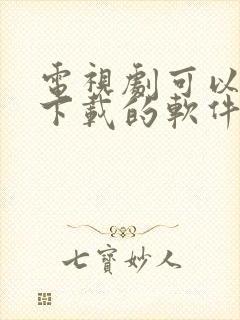 電視劇可以
下載的軟件
七寶妙人